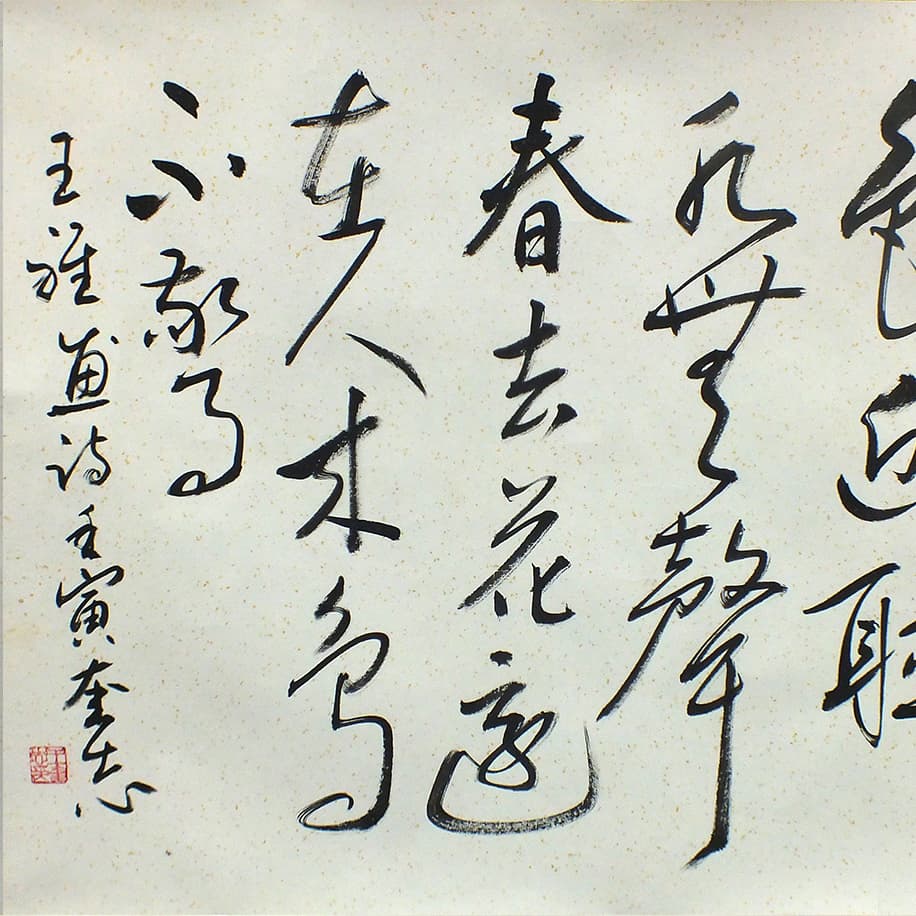 色近聽
水無聲
春去花還
在人来鳥
不驚
王維畫詩壬寅奎志